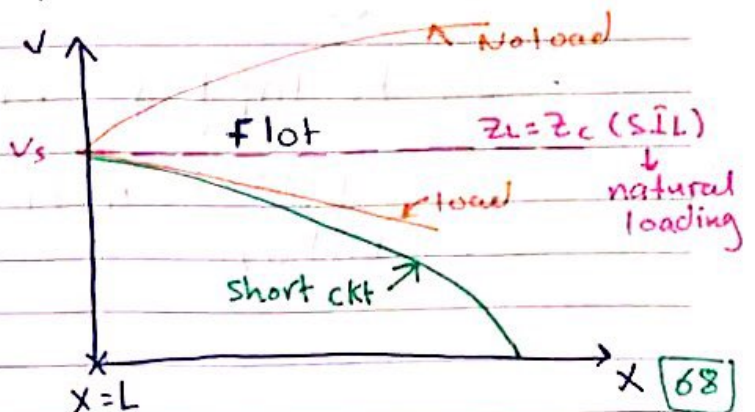 V
No load
Vs
Flot
ZL = Zc (SIL)
↓
natural
loading
load
short ckt
X = L
X
68